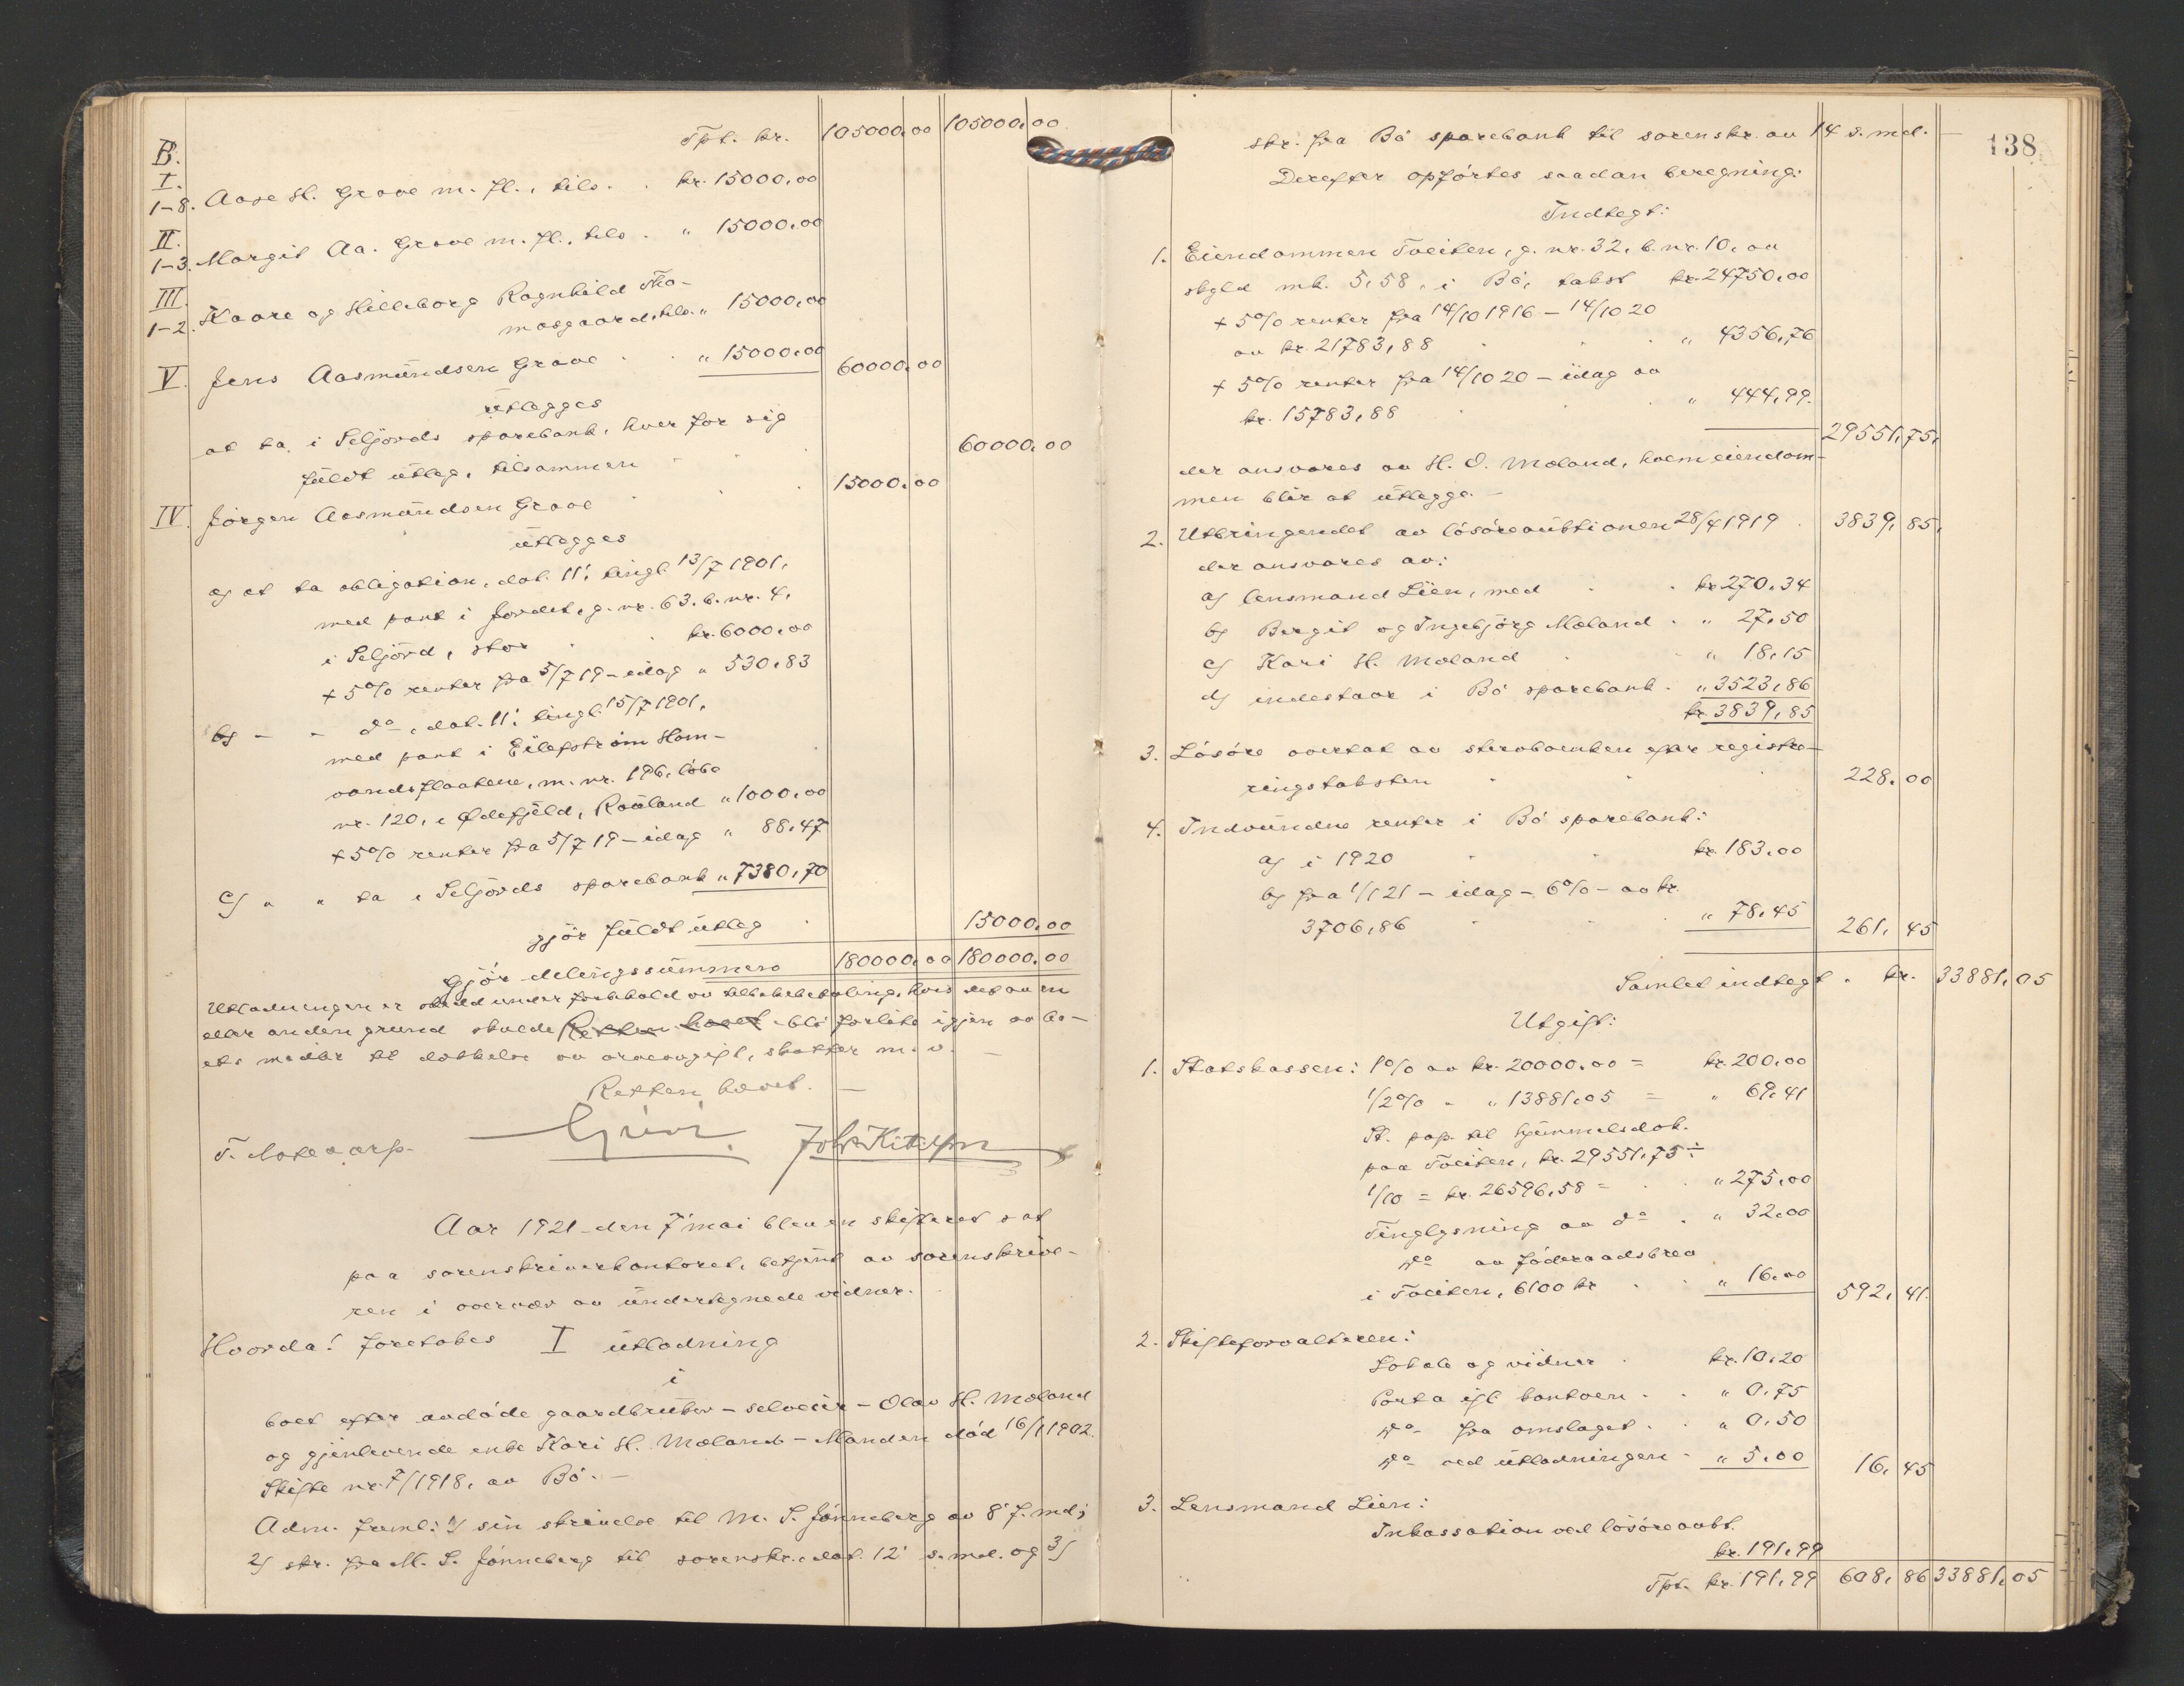 Tpt. kr. 105000.00 105000.00
B.
I.
1-8. Aase H. Grave m. fl., tils. . kr. 15000.00
II.
1-3. Margit Aa. Grave m. fl., tils. . " 15000.00
III.
1-2. Kaare og Hilleborg Ragnhild Tho-
masgaard, tils. " 15000.00
V. Jens Aasmundsen Grave . . " 15000.00 60000.00
utlægges
at ta i Seljords sparebank, hver for sig
fuldt utlæg, tilsammen . . . 60000.00
IV. Jørgen Aasmundsen Grave . . . 15000.00
utlægges
a) at ta obligation, dat. 11', tingl. 13/7 1901,
med pant i Jordet, g. nr. 63. b. nr. 4,
i Seljord, stor . kr. 6000.00
+ 5% renter fra 5/7 19 - idag " 530.83
b) - - do, dat. 11', tingl. 15/7 1901,
med pant i Eilefstrøm Ham-
vandsflaatene, m. nr. 196, løbe
nr. 120, i Ødefjeld, Rauland " 1000.00
+ 5% renter fra 5/7 19 - idag " 88.47
c) " " ta i Seljords sparebank " 7380.70
gjør fuldt utlæg . 15000.00
Gjør delingssummen 180000.00 180000.00
Utlodningen er skedd under forbehold av tilbakebetaling, hvis det av en
eller anden grund skulde Retten hævet bli forlite igjen av bo-
ets midler til dækkelse av arveavgift, skatter m. v. —
Retten hævet. —
T. Notevarp.
Aar 1921 - den 7' mai blev en skifteret sat
paa sorenskriverkontoret, betjent av sorenskrive-
ren i overvær av undertegnede vidner.
Hvorda: foretokes I utlodning
i
boet efter avdøde gaardbruker - selveier - Olav H. Moland
og gjenlevende enke Kari H. Moland - Manden død 16/1 1902.
Skifte nr. 7/1918, av Bø. —
Adm. freml: 1) sin skrivelse til M. S. Jønneberg av 8' f. md;
2) skr. fra M. S. Jønneberg til sorenskr. dat. 12' s. md. og 3)
138
skr. fra Bø sparebank til sorenskr. av 14 s. md. —
Derefter opførtes saadan beregning:
Indtægt:
1. Eiendommen Tveiten, g. nr. 32, b. nr. 10, av
skyld mk. 5,58, i Bø, takst kr. 24750.00
+ 5% renter fra 14/10 1916 - 14/10 20
av kr. 21783,88 . . . " 4356,76
+ 5% renter fra 14/10 20 - idag av
kr. 15783,88 . . " 444,99.
29551,75,
der ansvares av H. O. Moland, hvem eiendom-
men blir at utlægge. —
2. Utbringendet av løsøreauktionen 28/4 1919 . 3839, 85,
der ansvares av:
a) lensmand Lien, med . . kr. 270.34
b) Bergit og Ingebjørg Moland . " 27.50
c) Kari H. Moland . " 18.15
d) indestaar i Bø sparebank . " 3523,86
kr. 3839,85
3. Løsøre overtat av sterboenken efter registre-
ringstaksten . . . 228.00
4. Indvundne renter i Bø sparebank:
a) i 1920 . . kr. 183.00
b) fra 1/1 21 - idag - 6% - av kr.
3706,86 . . . " 78.45 261, 45
Samlet indtægt . kr. 33881,05
Utgift:
1. Statskassen: 1% av kr. 20000.00 = kr. 200.00
1/2% " " 13881.05 = " 69.41
St. pap. til hjemmelsdok.
paa Tveiten, kr. 29551,75 ÷
1/10 = kr. 26596,58 = . . " 275,00
Tinglysning av do . " 32.00
do av føderaadsbrev
i Tveiten, 6100 kr . . " 16.00 592, 41.
2. Skifteforvalteren:
Lokale og vidner . kr. 10.20
Porto ifl. kontoen . . " 0.75
do fra omslaget . . " 0.50
do ved utlodningen - " 5.00 16, 45
3. Lensmand Lien:
Inkassation ved løsøreaukt.
kr. 191.99
Tpt. kr. 191.99 608, 86 33881,05